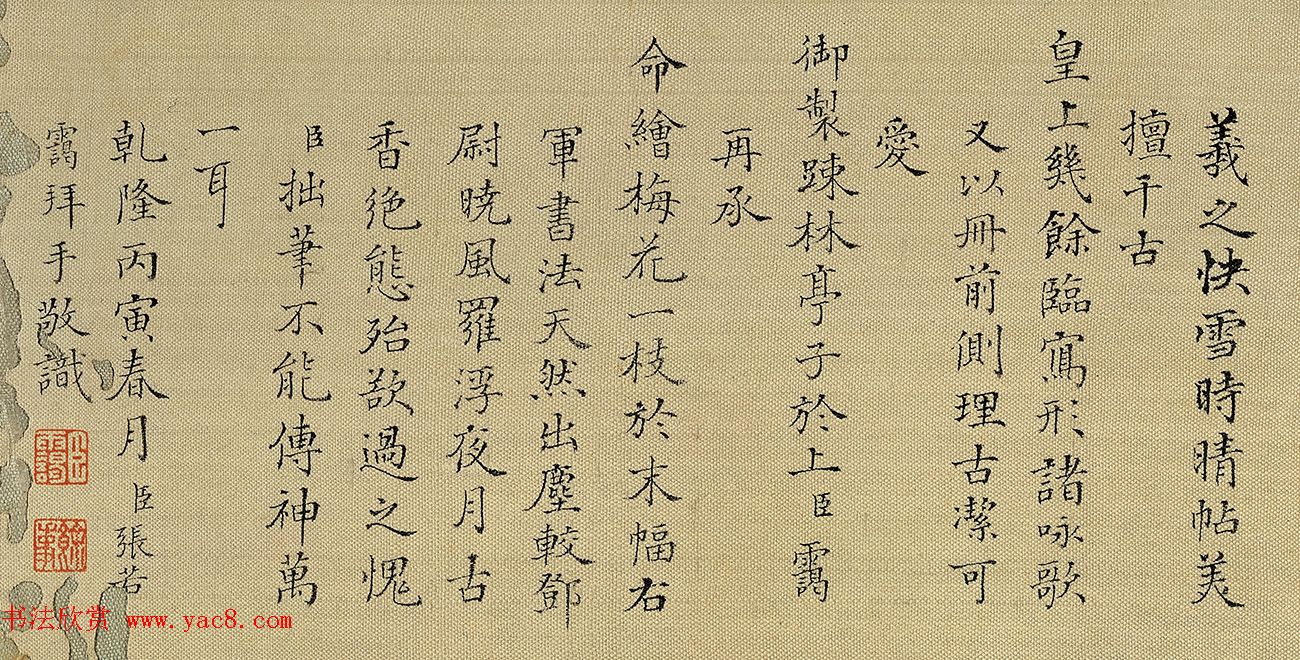 羲之快雪時晴帖美
擅千古
皇上幾餘臨寫形諸咏歌
又以冊前側理古潔可
愛
御製踈林亭子於上臣靄
再承
命繪梅花一枝於末幅右
軍書法天然出塵較鄧
尉曉風羅浮夜月古
香絶態殆欲過之愧
臣拙筆不能傳神萬
一耳
乾隆丙寅春月臣張若
靄拜手敬識
书法欣赏 www.yac8.com